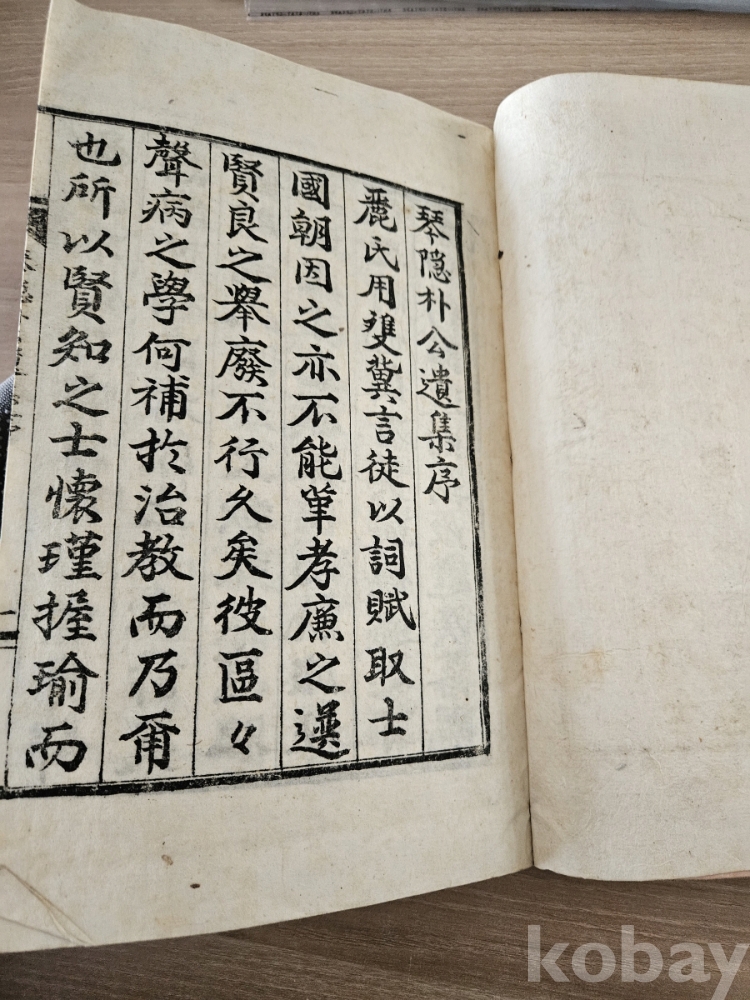 琴隱朴公遺集序
麗氏用雙冀言徒以詞賦取士
國朝因之亦不能革孝廉之選
賢良之擧廢不行久矣彼區々
聲病之學何補於治教而乃爾
也所以賢知之士懷瑾握瑜而
kobay